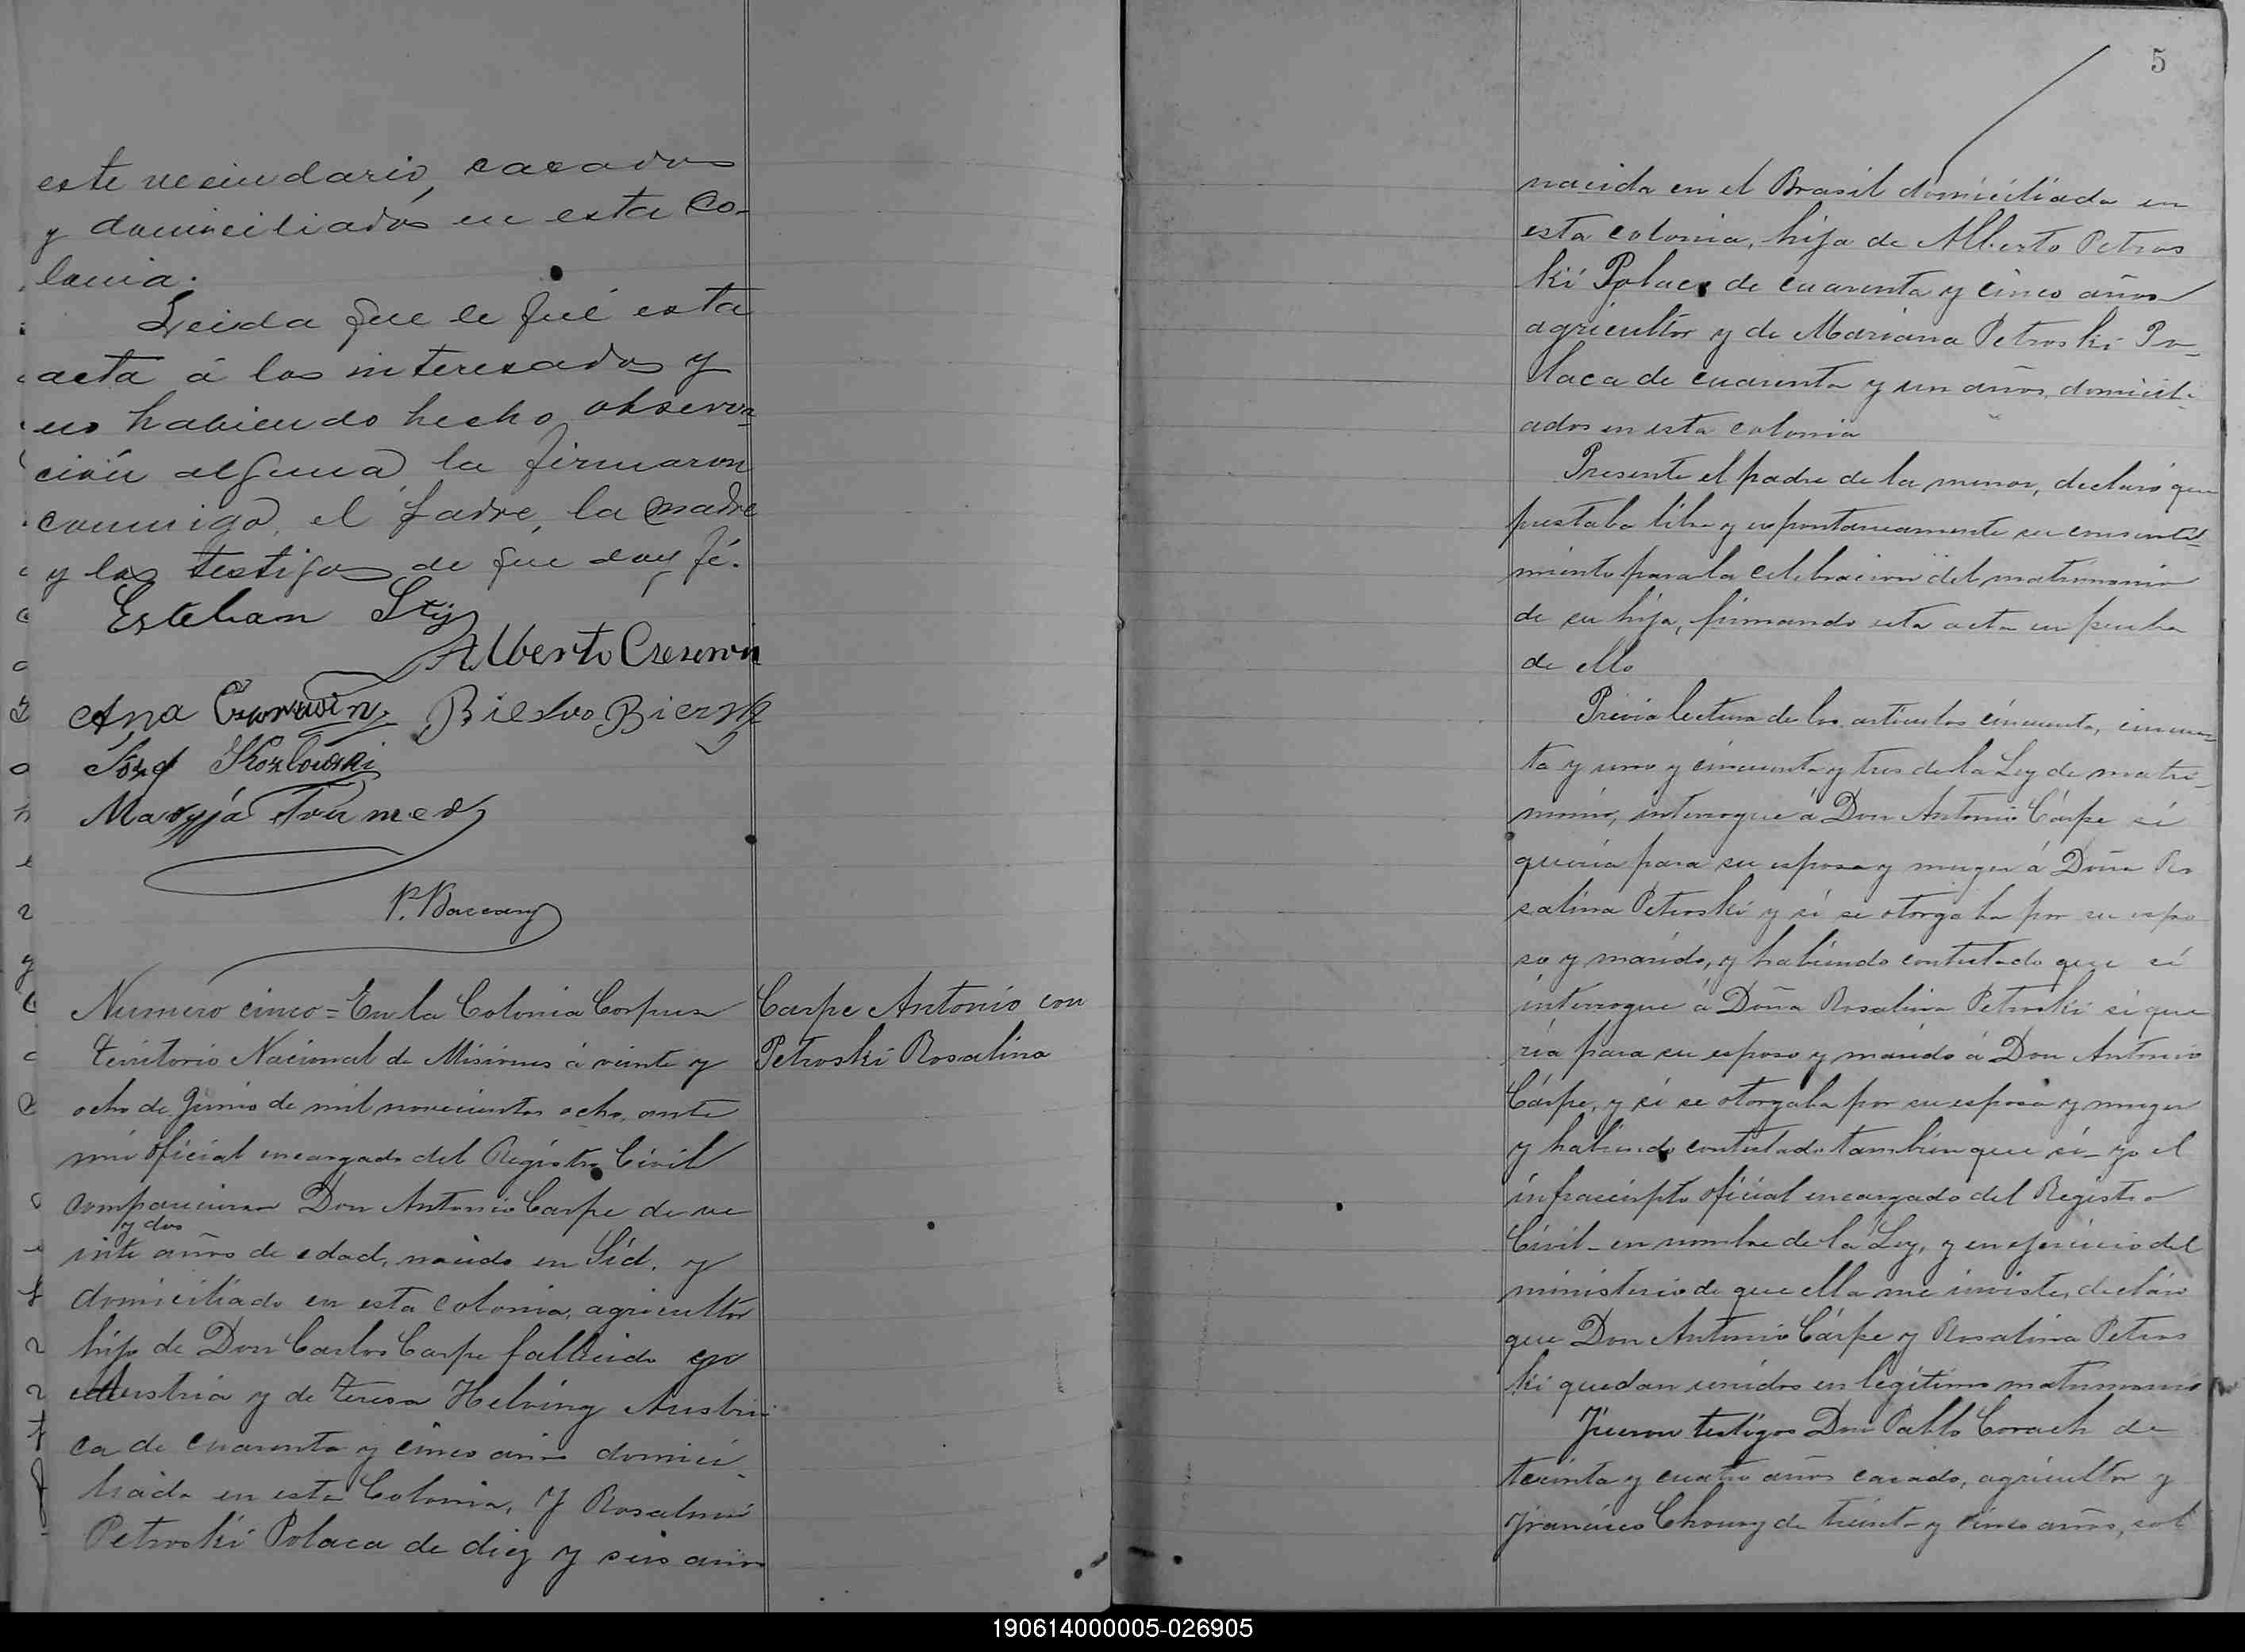 este vecindario, casados
y domiciliados en esta Co-
lonia.
Leida que le fué esta
acta á los interesados y
no habiendo hecho observa-
ción alguna, la firmaron
conmigo, el padre, la madre
y los testigos de que doy fé.
Esteban
Alberto
Ana
Kozlowski
Numero cinco = En la Colonia Corpus
Territorio Nacional de Misiones á veinte y
ocho de Junio de mil novecientos ocho, ante
mi oficial encargado del Registro Civil
comparecieron Don Antonio Carpe de ve
y dos
inte años de edad, nacido en Sid, y
domiciliado en esta colonia, agricultor
hijo de Don Carlos Carpe fallecido en
Austria y de Teresa Helving Austria
ca de cuarenta y cinco años domici
liada en esta Colonia, y Rosalina
Petroski Polaca de diez y seis años
Carpe Antonio con
Petroski Rosalina
5
nacida en el Brasil domiciliada en
esta colonia, hija de Alberto Petros
ki Polaco de cuarenta y cinco años
agricultor y de Mariana Petroski Po-
laca de cuarenta y un años, domicili-
ados en esta colonia
Presente el padre de la menor, declaró que
prestaba libre y espontaneamente su consenti-
miento para la celebracion del matrimonio
de su hija, firmando esta acta en prueba
de ello
Previa lectura de los articulos cincuenta, cincuen-
ta y uno y cincuenta y tres de la Ley de matri-
monio, interrogue á Don Antonio Cárpe si
queria para su esposa y muger á Doña Ro
salina Petroski y si se otorgaba por su espo
so y marido, y habiendo contestado que si
interrogue á Doña Rosalina Petroski si que
ria para su esposo y marido á Don Antonio
Cárpe, y si se otorgaba por su esposa y muger
y habiendo contestado tambien que si - yo el
infrascripto oficial encargado del Registro
Civil - en nombre de la Ley, y en ejercicio del
ministerio de que ella me inviste, declaro
que Don Antonio Cárpe y Rosalina Petros
ki quedan unidos en legitimo matrimonio
Fueron testigos Don Pablo Corach de
treinta y cuatro años casado, agricultor y
Francisco Chouvy de treinta y cinco años, sol
190614000005-026905